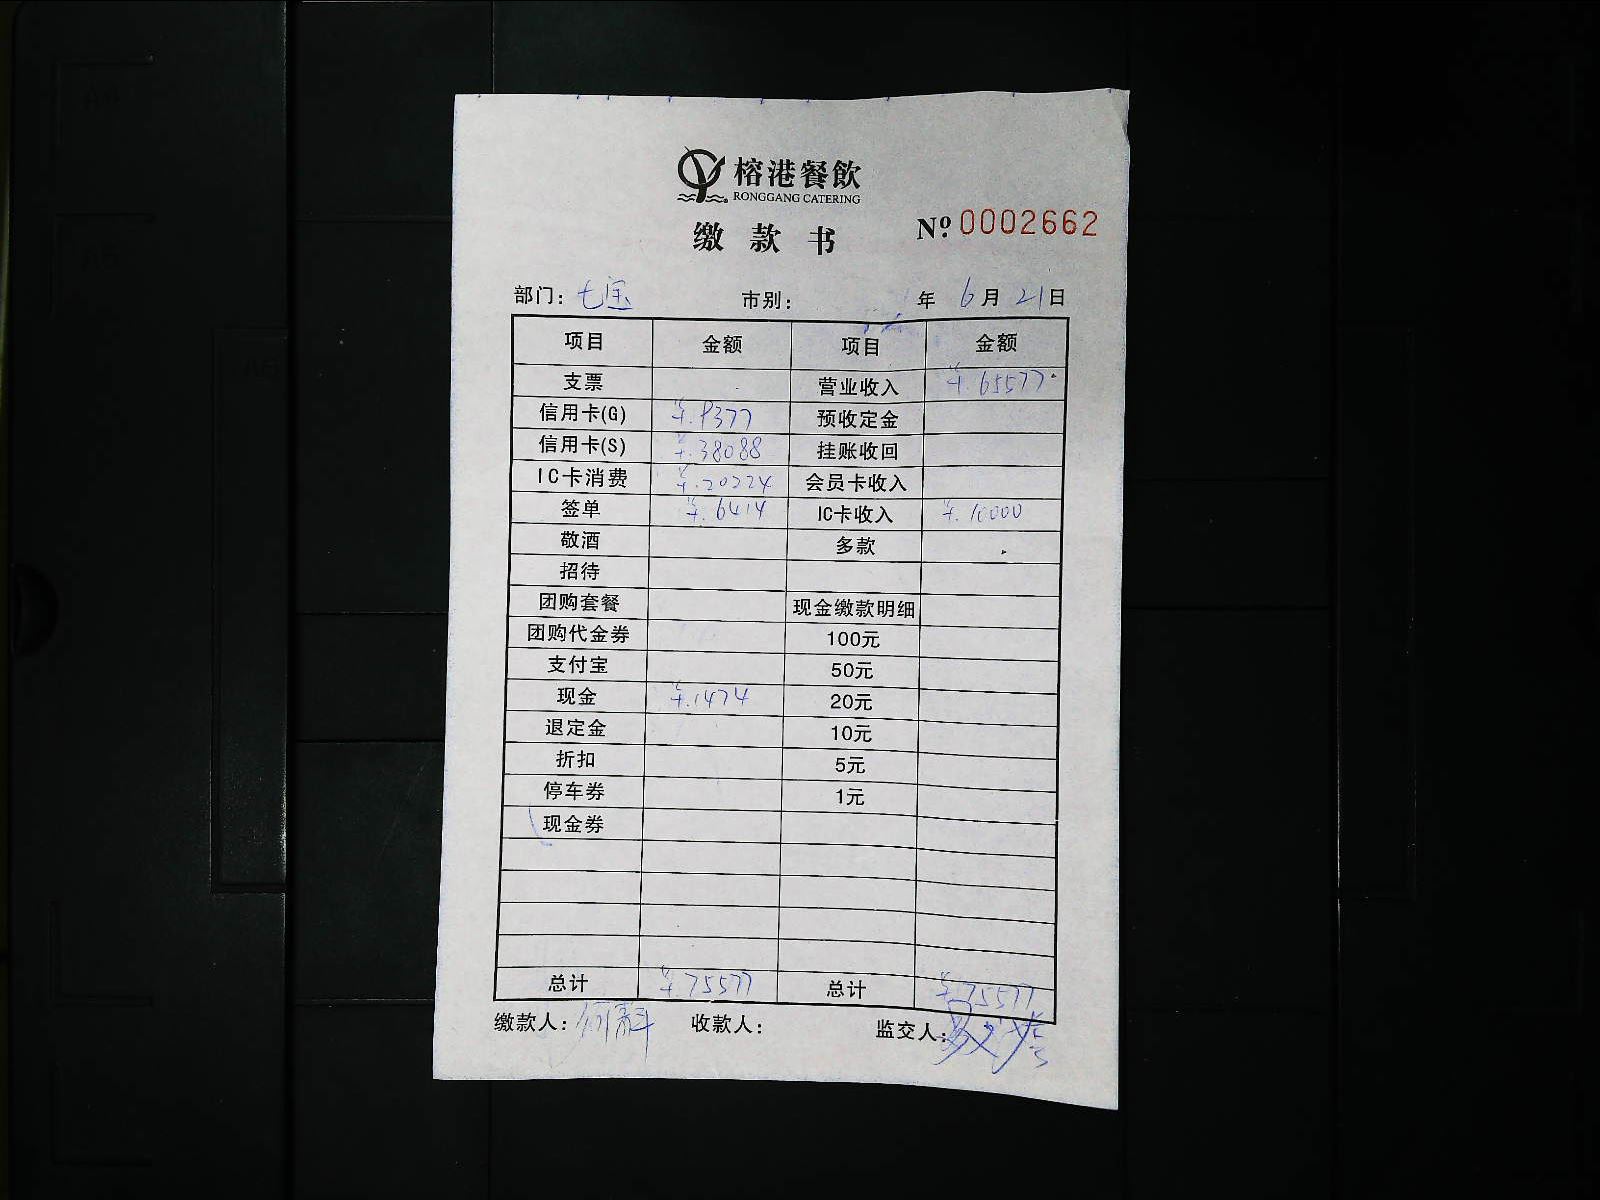 榕港餐飲
RONGGANG CATERING
缴款书 Nº 0002662
部门: 七宝 市别: 年 6月 21日
项目 金额 项目 金额
支票 营业收入 ¥.65577
信用卡(G) ¥.9377 预收定金
信用卡(S) ¥.38088 挂账收回
IC卡消费 ¥.20224 会员卡收入
签单 ¥.6414 IC卡收入 ¥.10000
敬酒 多款
招待
团购套餐 现金缴款明细
团购代金券 100元
支付宝 50元
现金 ¥.1474 20元
退定金 10元
折扣 5元
停车券 1元
现金券
总计 ¥.75577 总计 ¥.75577
缴款人: 收款人: 监交人: